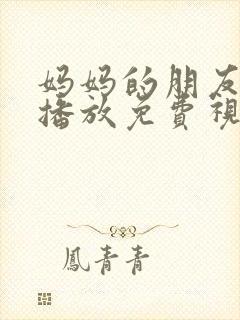 妈妈的朋友
播放免费視
鳳青青